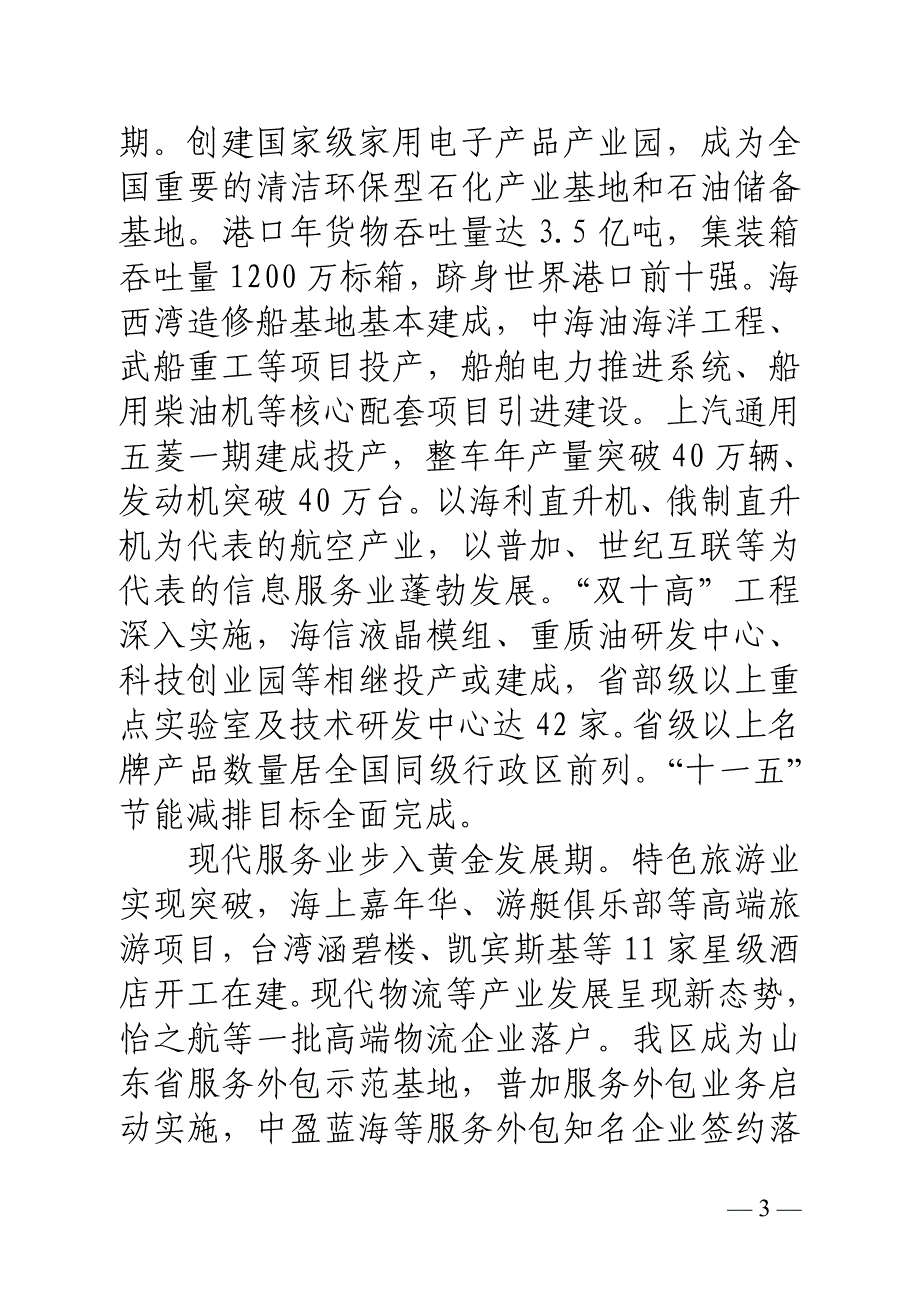 期。创建国家级家用电子产品产业园，成为全
国重要的清洁环保型石化产业基地和石油储备
基地。港口年货物吞吐量达 3.5 亿吨，集装箱
吞吐量 1200 万标箱，跻身世界港口前十强。海
西湾造修船基地基本建成，中海油海洋工程、
武船重工等项目投产，船舶电力推进系统、船
用柴油机等核心配套项目引进建设。上汽通用
五菱一期建成投产，整车年产量突破 40 万辆、
发动机突破 40 万台。以海利直升机、俄制直升
机为代表的航空产业，以普加、世纪互联等为
代表的信息服务业蓬勃发展。“双十高”工程
深入实施，海信液晶模组、重质油研发中心、
科技创业园等相继投产或建成，省部级以上重
点实验室及技术研发中心达 42 家。省级以上名
牌产品数量居全国同级行政区前列。“十一五”
节能减排目标全面完成。
现代服务业步入黄金发展期。特色旅游业
实现突破，海上嘉年华、游艇俱乐部等高端旅
游项目，台湾涵碧楼、凯宾斯基等 11 家星级酒
店开工在建。现代物流等产业发展呈现新态势，
怡之航等一批高端物流企业落户。我区成为山
东省服务外包示范基地，普加服务外包业务启
动实施，中盈蓝海等服务外包知名企业签约落
— 3 —